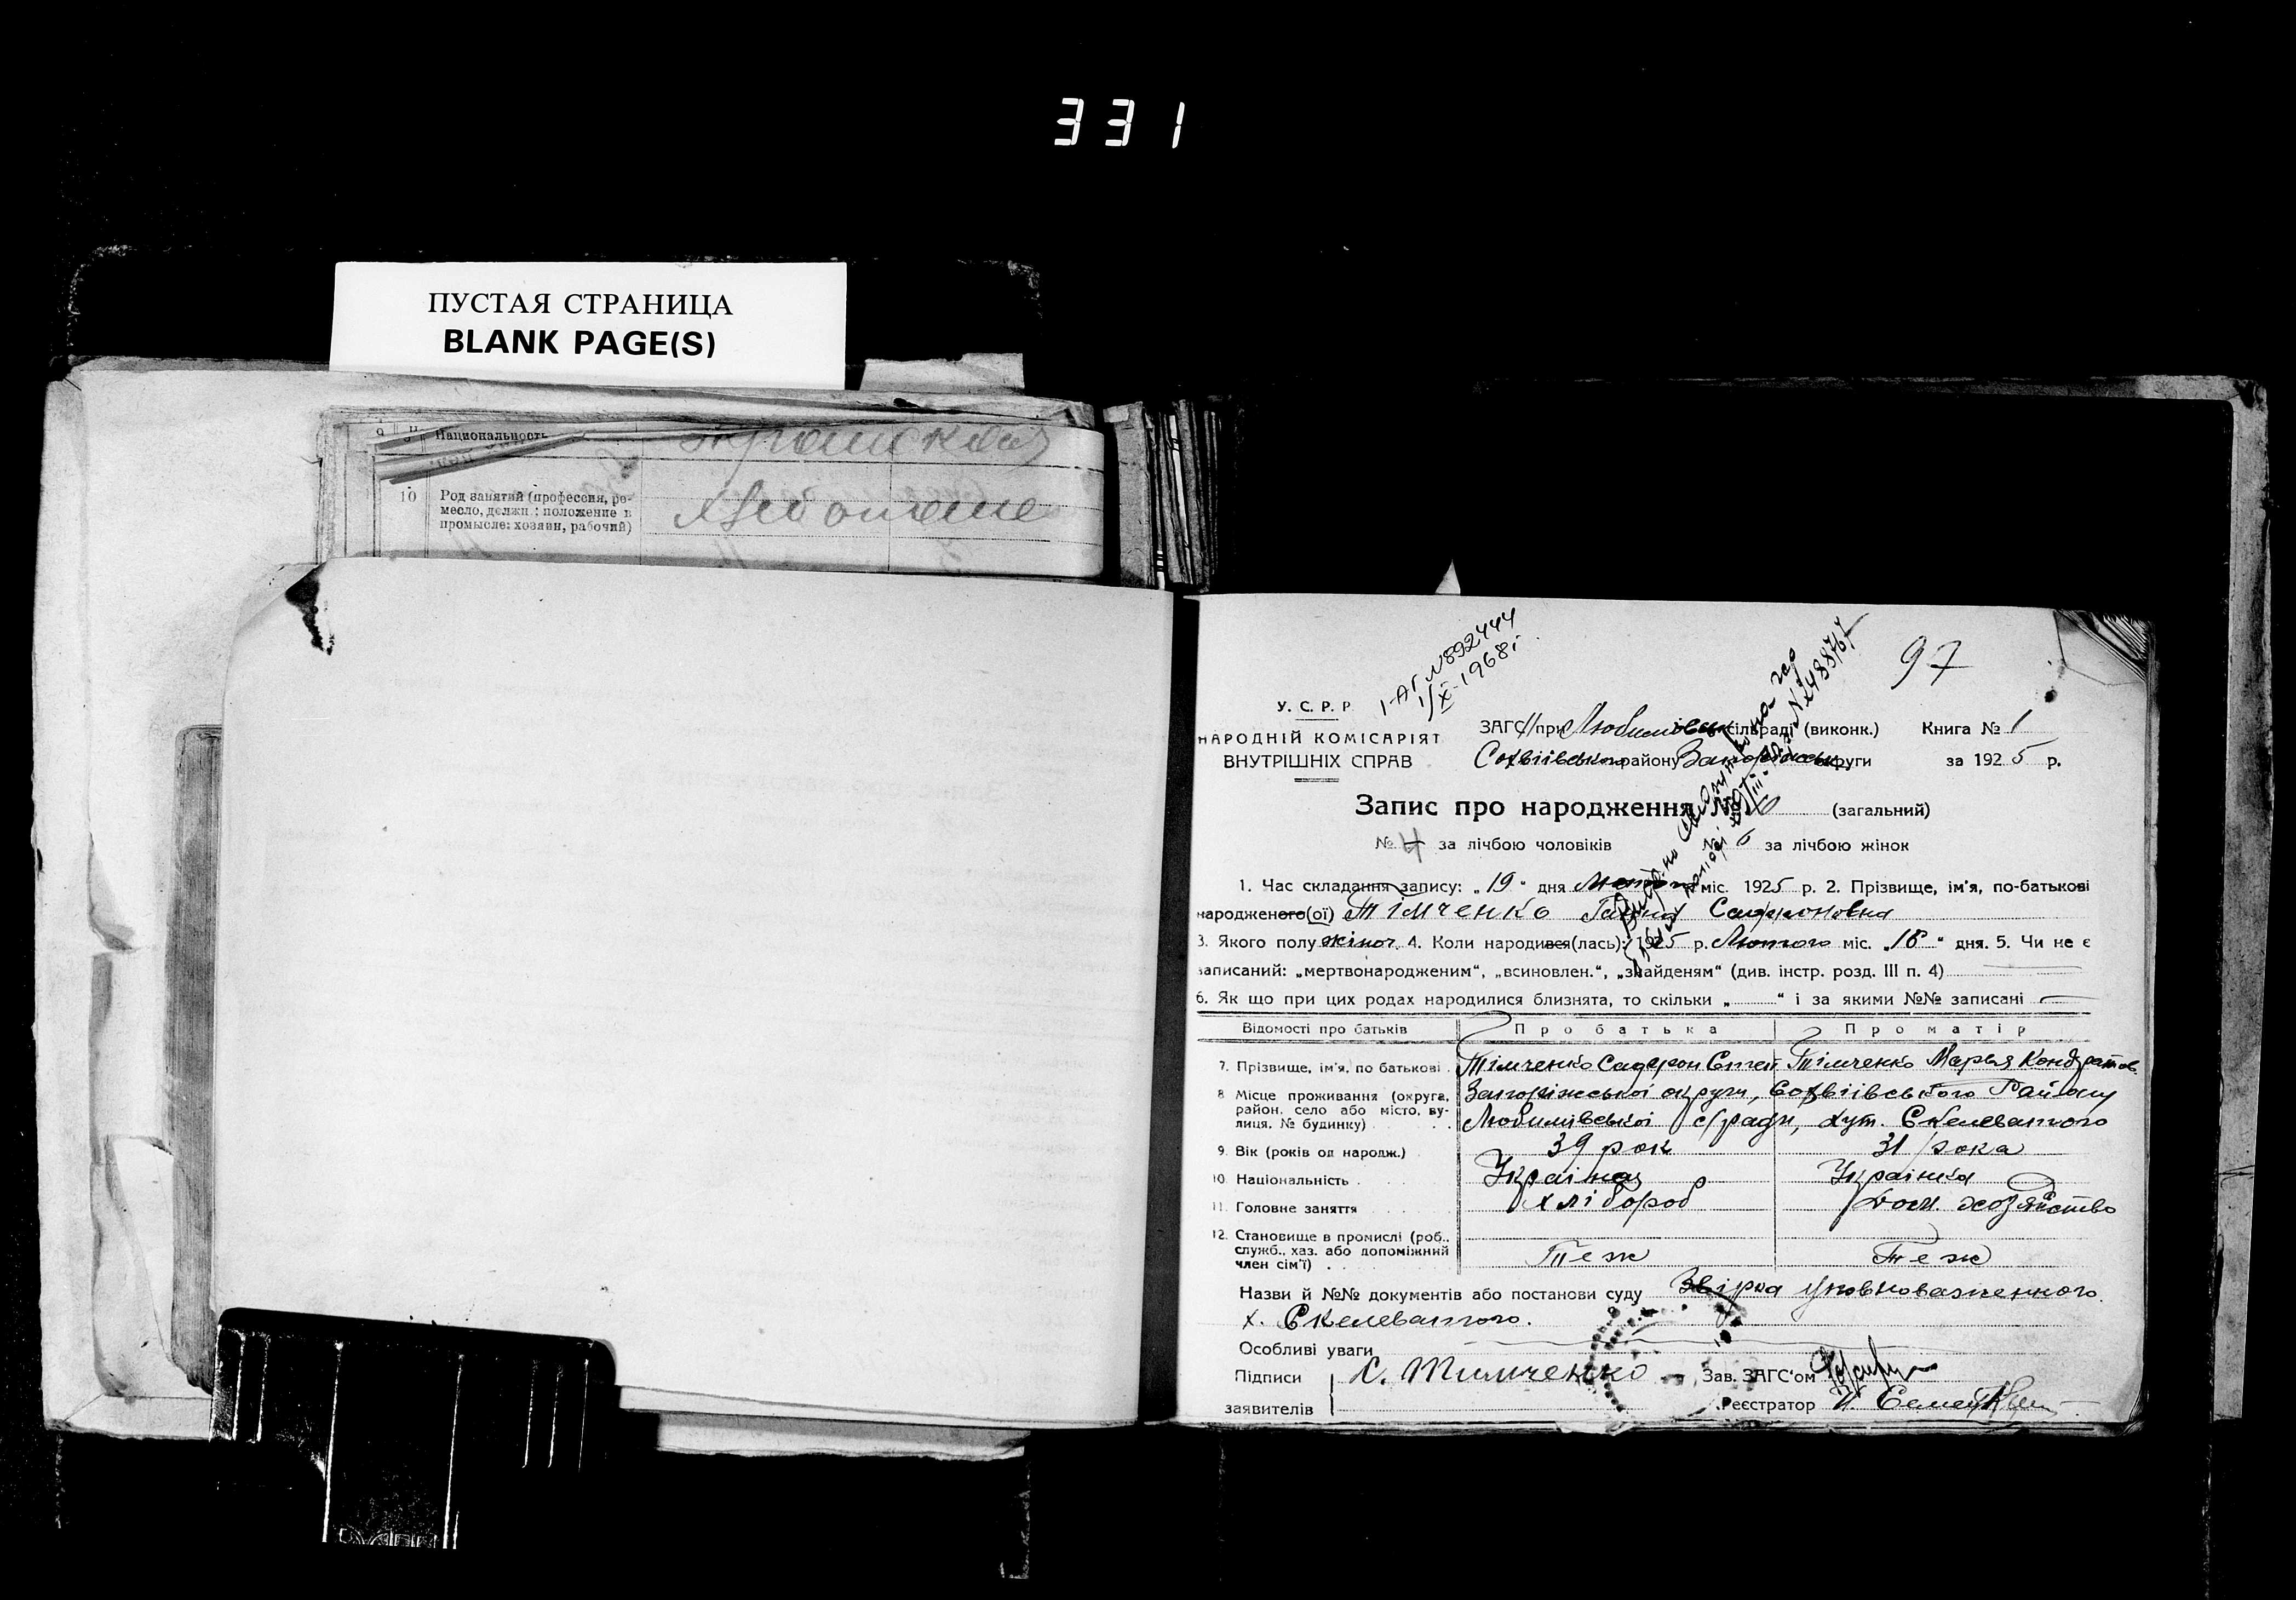 331
ПУСТАЯ СТРАНИЦА
BLANK PAGE(S)
Национальность
10 Род занятий (профессия, ре-
месло, должн.: положение в
промысле: хозяин, рабочий)
1-АГ №892444
1/X-1968г
97
У. С. Р. Р.
НАРОДНІЙ КОМІСАРІЯТ
ВНУТРІШНІХ СПРАВ
ЗАГС при Любимівськ сільраді (виконк.) Книга № 1
Софіївського району Запоріжськ округи за 1925 р.
Запис про народження № (загальний)
№ 4 за лічбою чоловіків № 6 за лічбою жінок
1. Час складання запису: „19“ дня Лютого міс. 1925 р. 2. Прізвище, ім'я, по-батькові
народженого(ої) Тімченко Ганна Сафроновна
3. Якого полу жіноч. 4. Коли народився(лась): 1925 р. Лютого міс. „18“ дня. 5. Чи не є
записаний: „мертвонародженим“, „всиновлен.“, „знайденям“ (див. інстр. розд. III п. 4)
6. Як що при цих родах народилися близнята, то скільки „ “ і за якими №№ записані
Відомості про батьків Про батька Про матір
7. Прізвище, ім'я, по батькові Тімченко Сафрон Степ Тімченко Марья Кондратов.
8 Місце проживання (округа, район, село або місто, ву-лиця, № будинку) Запоріжської округи, Софіївського Району
Любимівської с/ради, хут. Скелеватого
9. Вік (років од народж.) 39 рок 31 рока
10. Національність Українец Українка
11. Головне заняття хлібороб Дом. хозяйство
12. Становище в промислі (роб.,
служб., хаз. або допоміжний
член сім'ї) Теж Теж
Назви й №№ документів або постанови суду Звірка уповноваженного
х. Скелеватого.
Особливі уваги
Підписи С. Тимченко Зав. ЗАГС'ом
заявителів Реєстратор И.